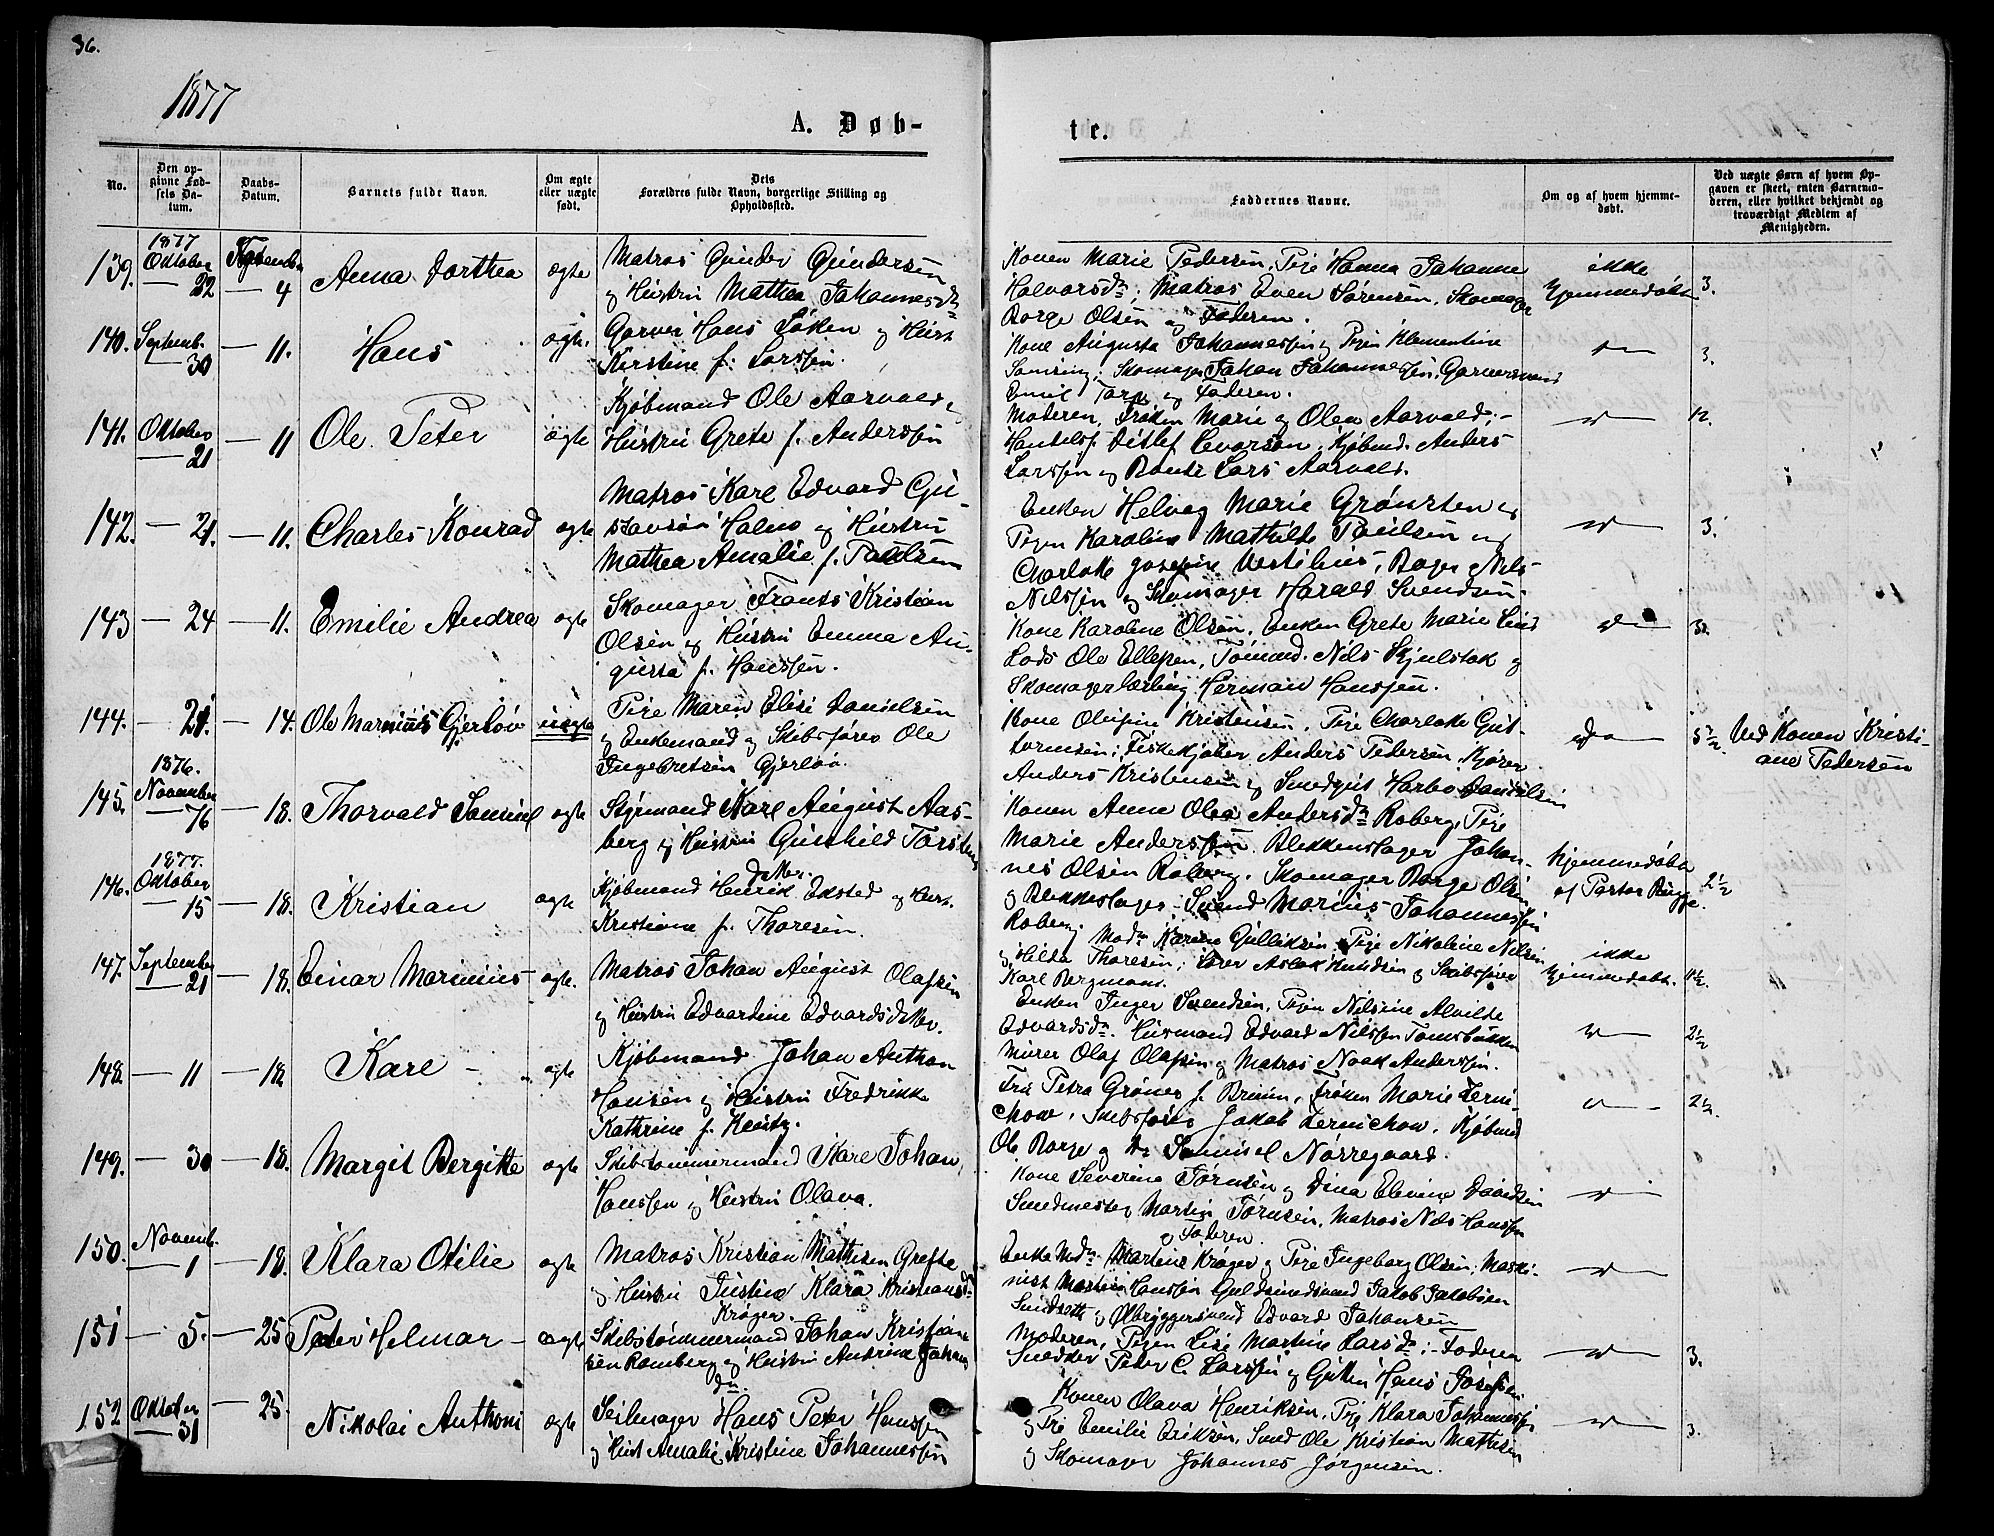 36.
1877
A. Døb-
te.
No.
Den op-
givne Fød-
sels Da-
tum.
Daabs-
Datum.
Barnets fulde Navn.
Om ægte
eller uægte
født.
Dets
Forældres fulde Navn, borgerlige Stilling og
Opholdssted.
Faddernes Navne.
Om og af hvem hjemme-
døbt.
Ved uægte Børn af hvem Op-
gaven er skeet, enten Barnemo-
deren, eller hvilket bekjendt og
troværdigt Medlem af
Menigheden.
139. 1877 Oktober 22 4 Anna Dorthea ægte
Matros Gunder Gundersen
og Hustru Mathea Johannesdr
Konen Marie Pedersen, Pige Hanna Johanne
Halvorsdr, Matros Even Sørensen, Skomager
Borge Olsen og Faderen.
ikke
hjemmedøbt 3.
140. Septemb. 30 11. Hans ægte.
Garver Hans Løken og Hust
Kirstine f. Larssen.
Kone Augusta Johannessen, Pigen Klementine
Skomager Johan Johannessen, Garversvend
Emil Torp og Faderen.
3.
141. Oktober 21 11 Ole Peter ægte
Kjøbmand Ole Aarvold og
Hustru Grete f. Anderssen
Moderen, Frøken Marie og Olea Aarvold;-
Handelsf. Ditlef Levorsen, Kjøbmd. Anders
Larssen og Lars Aarvold.
12.
142. 21. 11. Charles Konrad ægte
Matros Karl Edvard Gu-
stavsøn Holm og Hustru
Mathea Amalie f. Paulsen
Enken Helvig Marie Grønsten og
Pigen Karoline Mathilde Paulsen og
Charlotte Josefine Vestilius, Bager Nils
Nilssen og Skomager Harald Svendsen.
3.
143 24 11. Emilie Andrea ægte
Skomager Frants Kristian
Olsen og Hustru Emma Au-
gusta f. Hanssen.
Kone Karoline Olsen, Enken Grete Marie Lind
Lods Ole Ellefsen, Tømmd. Nils Skjulstok og
Skomagerlærling Herman Hanssen.
3.
144. 21. 14. Ole Marinius Gjerløv uægte
Pige Maren Elise Danielsen
og Enkemand og Skibsfører Ole
Ingebretsen Gjerløv.
Kone Olufine Kristensen, Pige Charlotte Gut-
tormsen; Fiskekjøber Anders Pedersen, Kjører
Anders Kristensen og Smedgut Harbo Danielsen
5½ Ved Konen Kristi-
ane Pedersen
145. 1876. November 76 18. Thorvald Samuel ægte
Styrmand Karl August Aas-
berg og Hustru Gunhild Torstens
datter.
Konen Anne Olea Andersdr Roberg, Pige
Marie Anderssen, Blikkenslager Johan-
nes Olsen Roberg, Skomager Borge Olsen
og Blikkenslager Svend Marius Johannessen
Roberg.
hjemmedøbt
af Pastor Bugge. 2½
146. 1877. Oktober 15 18. Kristian ægte
Kjøbmand Henrik Eksted og Hust.
Kristiane f. Thoresen.
Madm Karen Gulliksen, Pige Nikoline Nilsen
og Hilda Thoresen; Fører Aslak Knudsen og Skibsfører
Karl Bergmann.
ikke
hjemmedøbt. 1½.
147. September 21 18. Einar Marinius ægte.
Matros Johan August Olafsen
og Hustru Edvardine Edvardsdatter.
Enken Inger Svendsen, Pigen Nilsine Alvilde
Edvardsdr Husmand Edvard Nilssen Tomsbakken
Murer Olaf Olafsen og Matros Noak Anderssen.
2½
148. 11 18. Karl ægte
Kjøbmand Johan Anthon
Hansen og Hustru Fredrikke
Kathrine f. Keutz.
Fru Petra Grøner f. Bruun, Frøken Marie Zerni-
chow, Skibsfører Jakob Zernichow, Kjøbmd
Ole Borge og Do Samuel Nørregaard.
2½.
149. 30 18. Margit Bergitte ægte
Skibstømmermand Karl Johan
Hanssen og Hustru Olava.
Kone Severine Tørnsen og Dina Elevine Davidsen
Smedmester Martin Tørnsen, Matros Nils Hanssen
og Faderen.
150. Novemb. 1 18. Klara Otilie ægte
Matros Kristian Mathisen Grefte
og Hustru Justine Klara Kristiansdr
Krøger.
Enke Mdm Martine Krøger og Pige Ingeborg Olsen; Maski-
nist Martin Hanssen Guldsmedsvend Jakob Jakobsen
Sundsett og Ølbryggersvend Edvard Johansen
151 5. 25 Peder Helmar ægte
Skibstømmermand Johan Kristian-
sen Ramberg og Hustru Andrine Johans
dr.
Moderen, Pigen Lise Martine Larsdr;- Faderen
Snedker Peter C. Larssen og Gutten Hans Josefsen
3.
152 Oktober 31 25. Nikolai Anthoni ægte
Seilmager Hans Peter Hanssen
og Hust Amalie Kristine Johannessen
Konen Olava Henriksen, Pige Klara Johannessen
og Pige Emilie Eriksen, Smed Ole Kristian Mathisen
og Skomager Johannes Jørgensen.
3.